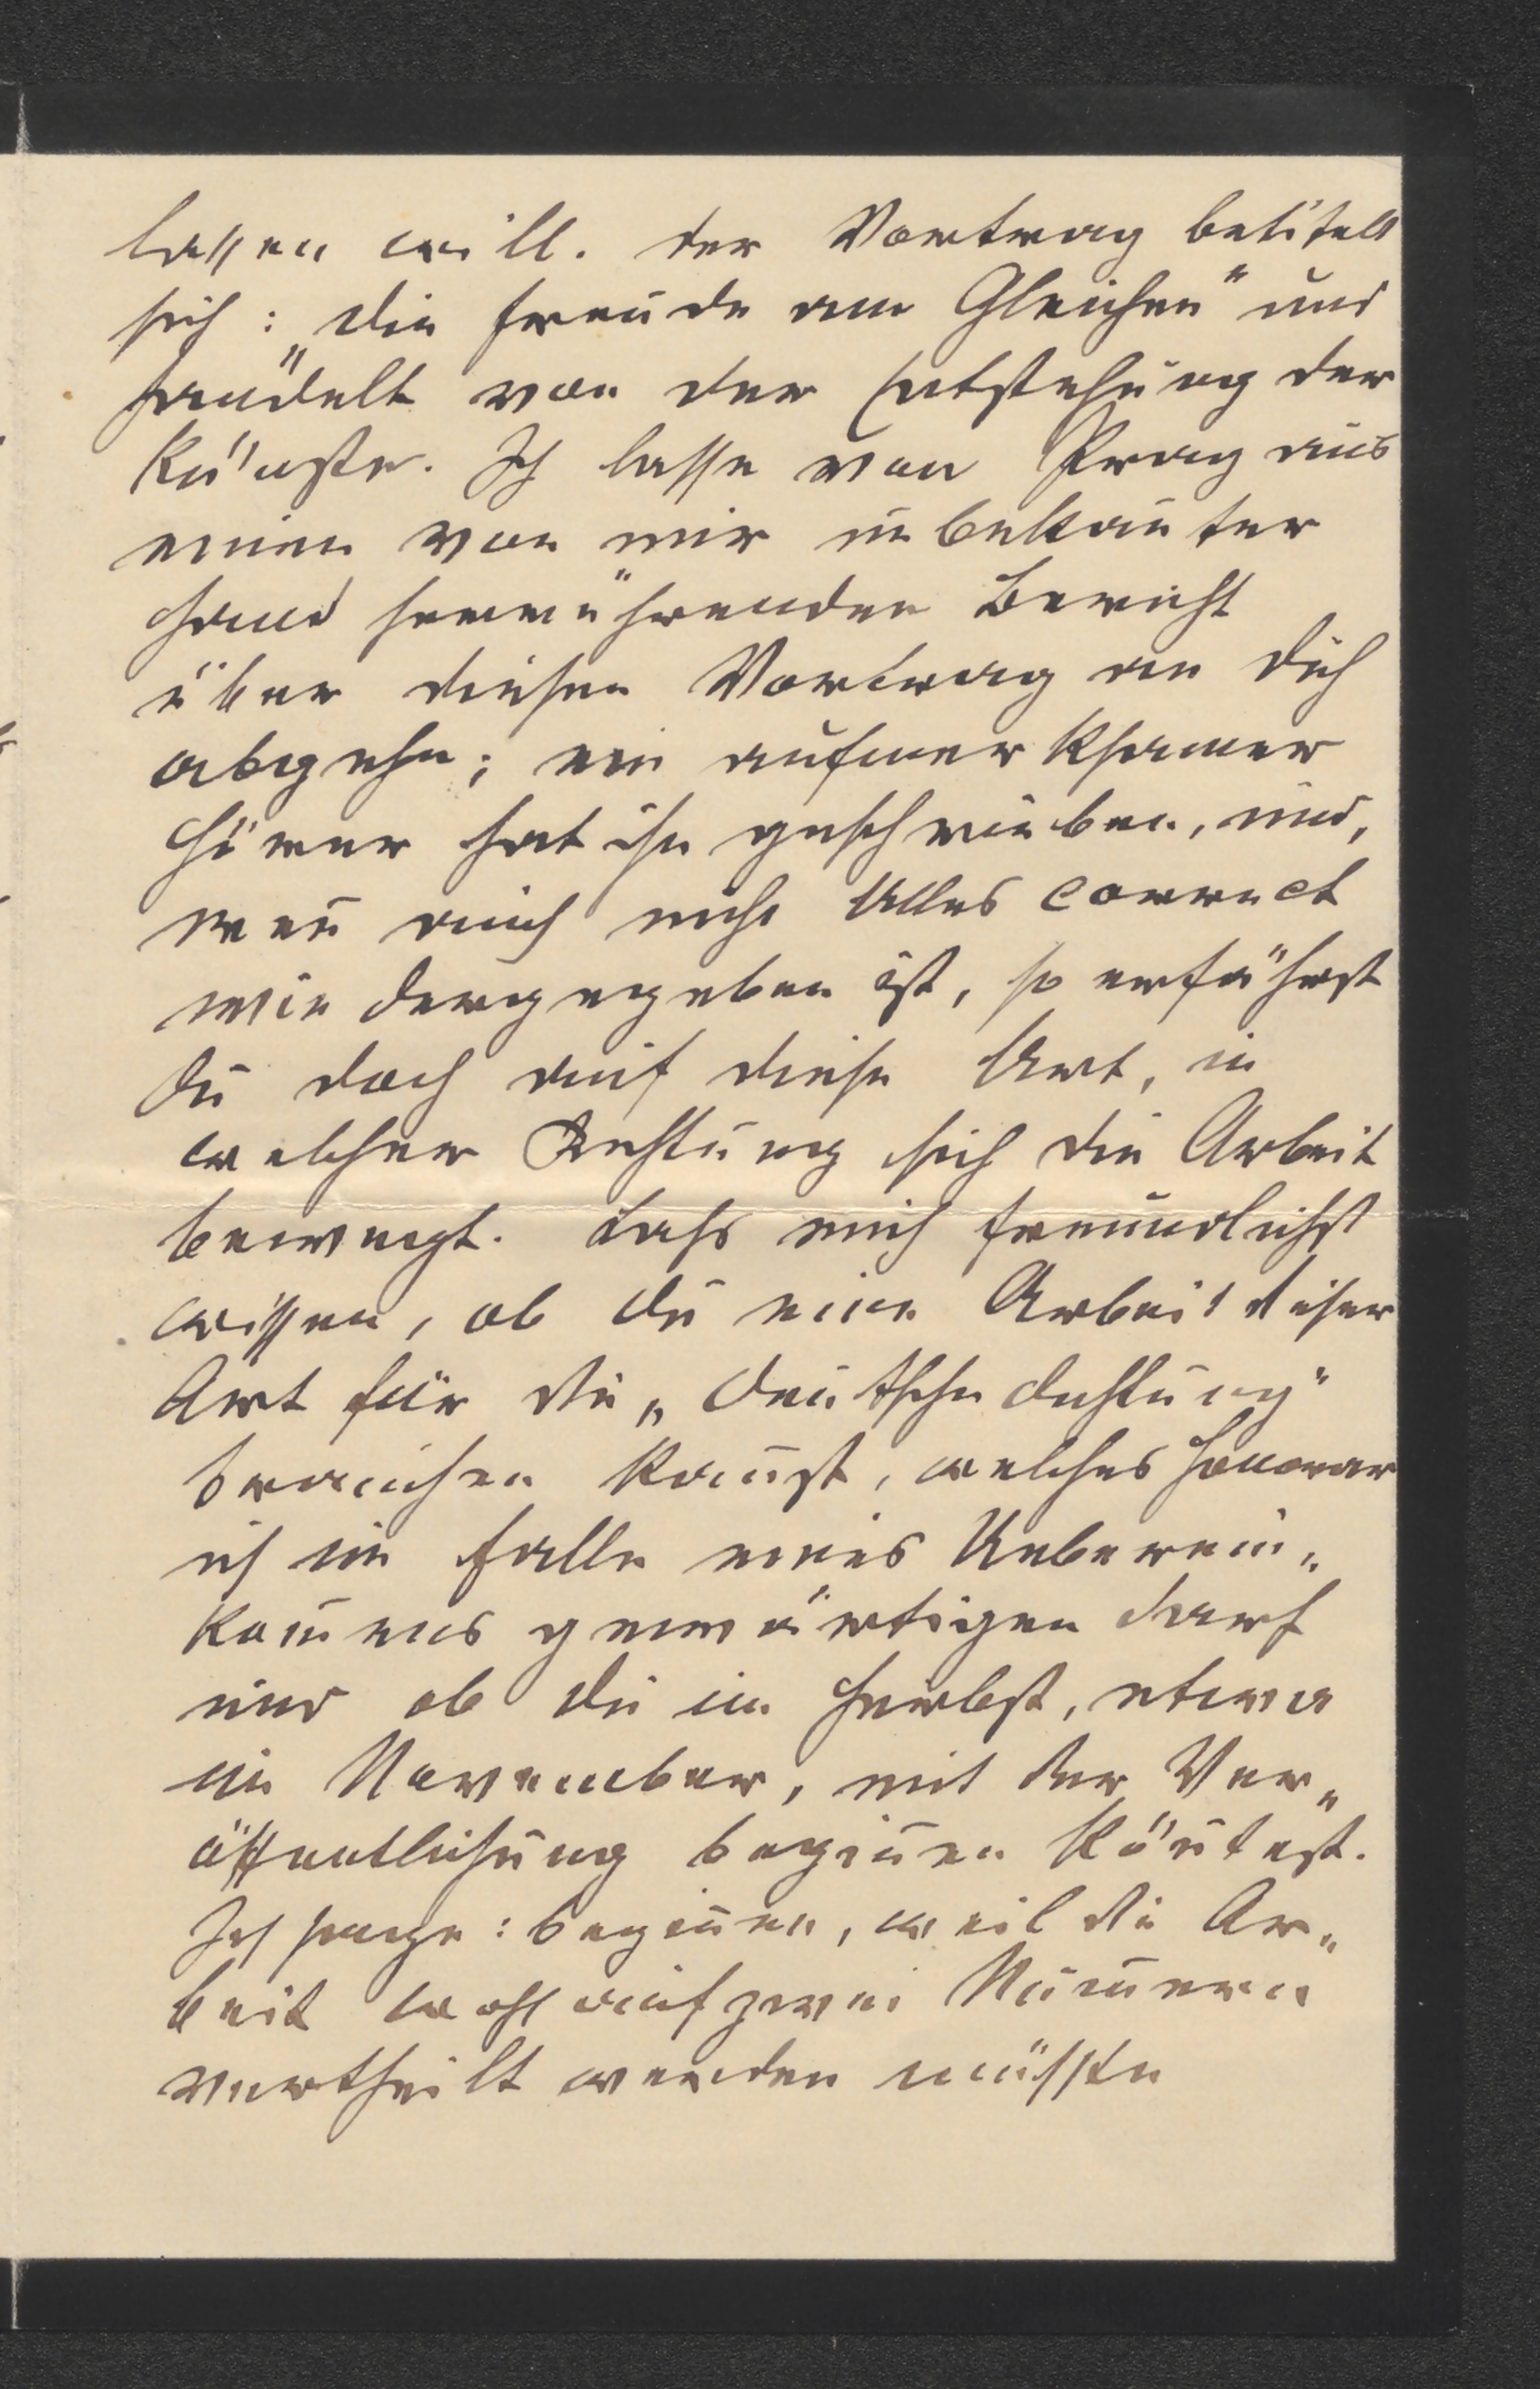 lassen will. Der Vortrag betitelt
sich: „Die Freude am Gleichen“ und
handelt von der Entstehung der
Künste. Ich lasse von Prag aus
einen von mir unbekan̄ter
Hand herrührenden Bericht
über diesen Vortrag an Dich
abgehn; ein aufmerksamer
Hörer hat ihn geschrieben, und,
wen̄ auch nicht Alles correct
wiedergegeben ist, so erfährst
Du doch auf diese Art, in
welcher Richtung sich die Arbeit
bewegt. Lass mich freundlichst
wissen, ob Du eine Arbeit dieser
Art für die „Deutsche Dichtung“
brauchen kan̄st, welches Honorar
ich im Falle eines Ueberein„
kom̄ens gewärtigen darf
und ob Du im Herbst, etwa
im November, mit der Ver„
öffentlichung begin̄en kön̄test.
Ich sage: begin̄en, weil die Ar„
beit wohl auf zwei Num̄ern
vertheilt werden müsste